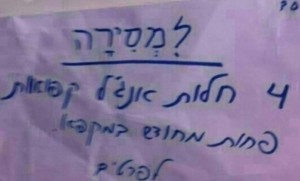 לִמְסִירָה
4 חלות אנג'ל קפואות
פחות מחודש במקפא.
לפרטים